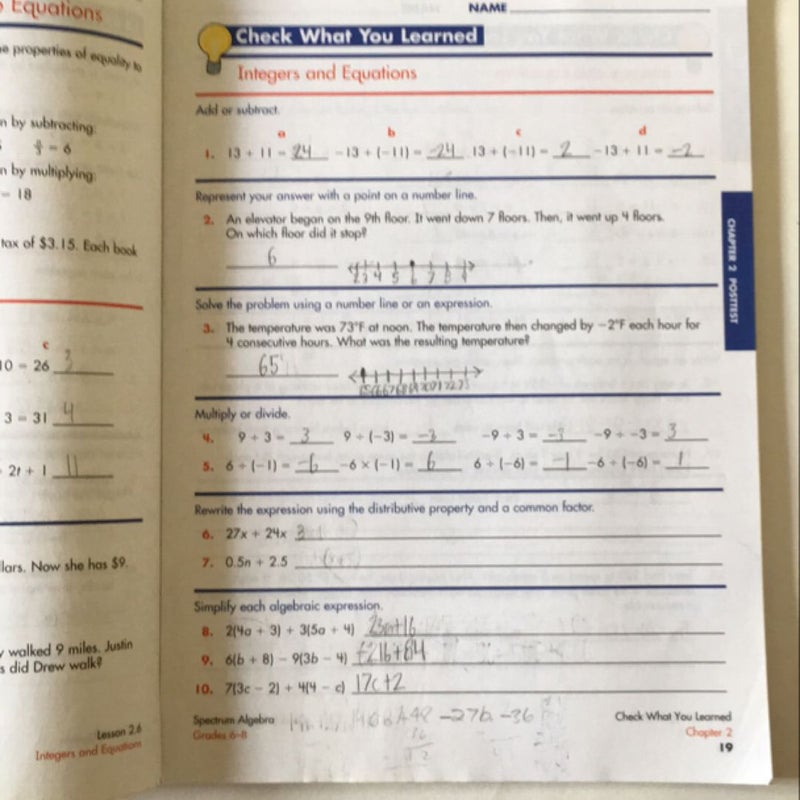 Equations
NAME
Check What You Learned
Integers and Equations
e properties of equality to
n by subtracting:
= 6
n by multiplying:
= 18
tax of $3.15. Each book
c
10 = 26 3
3 = 31 4
2t + 1 11
llars. Now she has $9.
y walked 9 miles. Justin
s did Drew walk?
Lesson 2.6
Integers and Equations
Add or subtract.
a b c d
1. 13 + 11 = 24 -13 + (-11) = -24 13 + (-11) = 2 -13 + 11 = -2
Represent your answer with a point on a number line.
2. An elevator began on the 9th floor. It went down 7 floors. Then, it went up 4 floors.
On which floor did it stop?
6
Solve the problem using a number line or an expression.
3. The temperature was 73°F at noon. The temperature then changed by -2°F each hour for
4 consecutive hours. What was the resulting temperature?
65
Multiply or divide.
4. 9 ÷ 3 = 3 9 ÷ (-3) = -3 -9 ÷ 3 = -3 -9 ÷ -3 = 3
5. 6 ÷ (-1) = -6 -6 × (-1) = 6 6 ÷ (-6) = -1 -6 ÷ (-6) = 1
Rewrite the expression using the distributive property and a common factor.
6. 27x + 24x 3
7. 0.5n + 2.5
Simplify each algebraic expression.
8. 2(4a + 3) + 3(5a + 4)
9. 6(b + 8) - 9(3b - 4)
10. 7(3c - 2) + 4(4 - c) 17c+2
-27b -36
Spectrum Algebra
Grades 6–8
Check What You Learned
Chapter 2
19
CHAPTER 2 POSTTEST